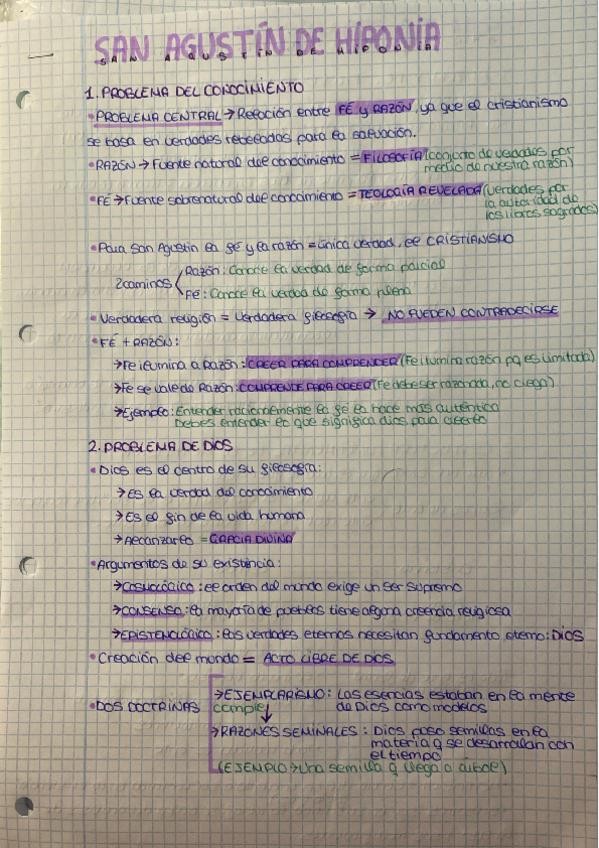 SAN AGUSTÍN DE HIPONÍA
1. PROBLEMA DEL CONOCIMIENTO
• PROBLEMA CENTRAL → Relación entre FÉ y RAZÓN, ya que el cristianismo
se basa en verdades rebeladas para la salvación.
• RAZÓN → Fuente natural del conocimiento = FILOSOFÍA (conjunto de verdades por
medio de nuestra razón)
• FÉ → Fuente sobrenatural del conocimiento = TEOLOGÍA REVELADA (verdades por
la autoridad de
los libros sagrados)
• Para San Agustín la fé y la razón = única verdad, el CRISTIANISMO
2 caminos
Razón: Conoce la verdad de forma parcial
Fé: Conoce la verdad de forma plena
• Verdadera religión = Verdadera filosofía → NO PUEDEN CONTRADECIRSE
• FÉ + RAZÓN:
→ Fe ilumina a Razón: CREER PARA COMPRENDER (Fe ilumina razón pq es limitada)
→ Fe se vale de Razón: COMPRENDE PARA CREER (Fe debe ser razonada, no ciega)
→ Ejemplo: Entender racionalmente la fé la hace más auténtica
Debes entender lo que significa dios para creerlo
2. PROBLEMA DE DIOS
• Dios es el centro de su filosofía:
→ Es la verdad del conocimiento
→ Es el fin de la vida humana
→ Alcanzarlo = GARCIA DIVINA
• Argumentos de su existencia:
→ COSMOLÓGICO: el orden del mundo exige un ser supremo
→ CONSENSO: la mayoría de pueblos tiene alguna creencia religiosa
→ EPISTEMOLÓGICO: las verdades eternas necesitan fundamento eterno: DIOS
• Creación del mundo = ACTO LIBRE DE DIOS
• DOS DOCTRINAS
→ EJEMPLARISMO: Las esencias estaban en la mente
de Dios como modelos
→ RAZONES SEMINALES: Dios puso semillas en la
materia q se desarrollan con
el tiempo
(EJEMPLO → Una semilla q llega a árbol)